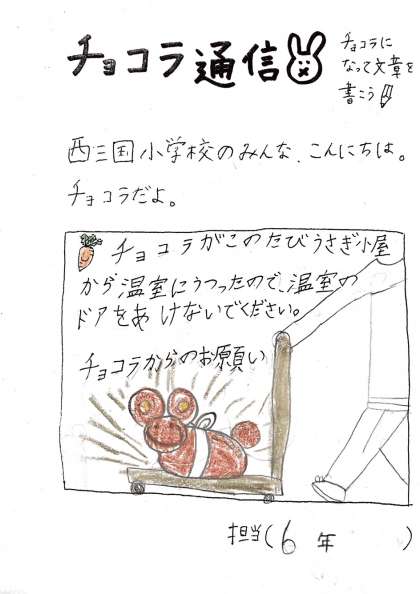 チョコラ通信
チョコラに
なって文章を
書こう
西三国小学校のみんな、こんにちは。
チョコラだよ。
チョコラがこのたびうさぎ小屋
から温室にうつったので、温室の
ドアをあけないでください。
チョコラからのお願い
担当(6年　　)